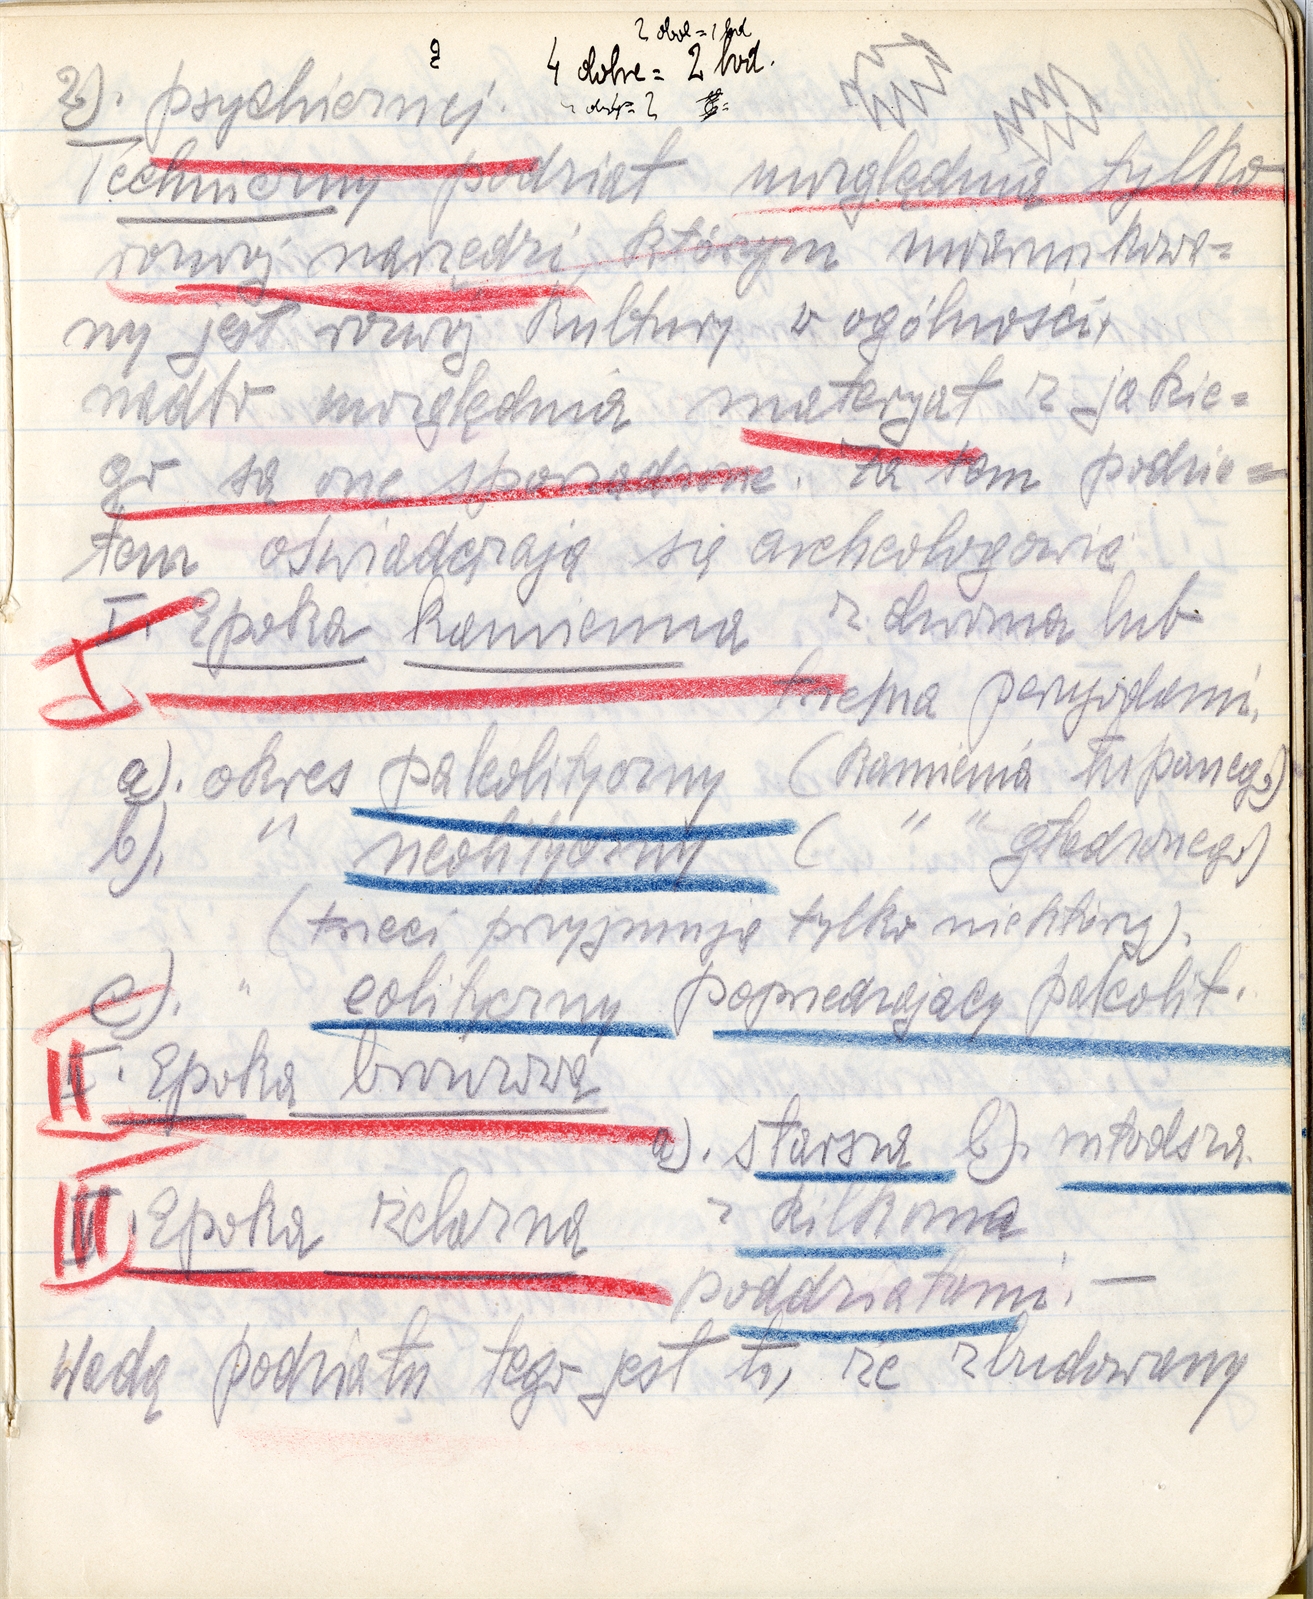 4 dobre = 2 bvd.
2). psychicznej.
Techniczny podział uwzględnia tylko
rozwój narzędzi, którym uwarunkowa=
ny jest rozwój kultury w ogólności,
nadto uwzględnia materyał z jakie=
go są one sporządzone. Za tem podzia=
łem oświadczają się archeologowie
I. Epoka kamienna z dwoma lub
trzema peryodami.
a). okres paleolityczny (kamienia łupanego)
b). " neolityczny ( " " gładzonego)
(trzeci przyjmują tylko niektórzy).
c). " eolityczny poprzedzający paleolit.
II. Epoka bronzowa
a). starsza b). młodsza.
III. Epoka żelazna z kilkoma
poddziałami. —
Wadą podziału tego jest to, że zbudowany